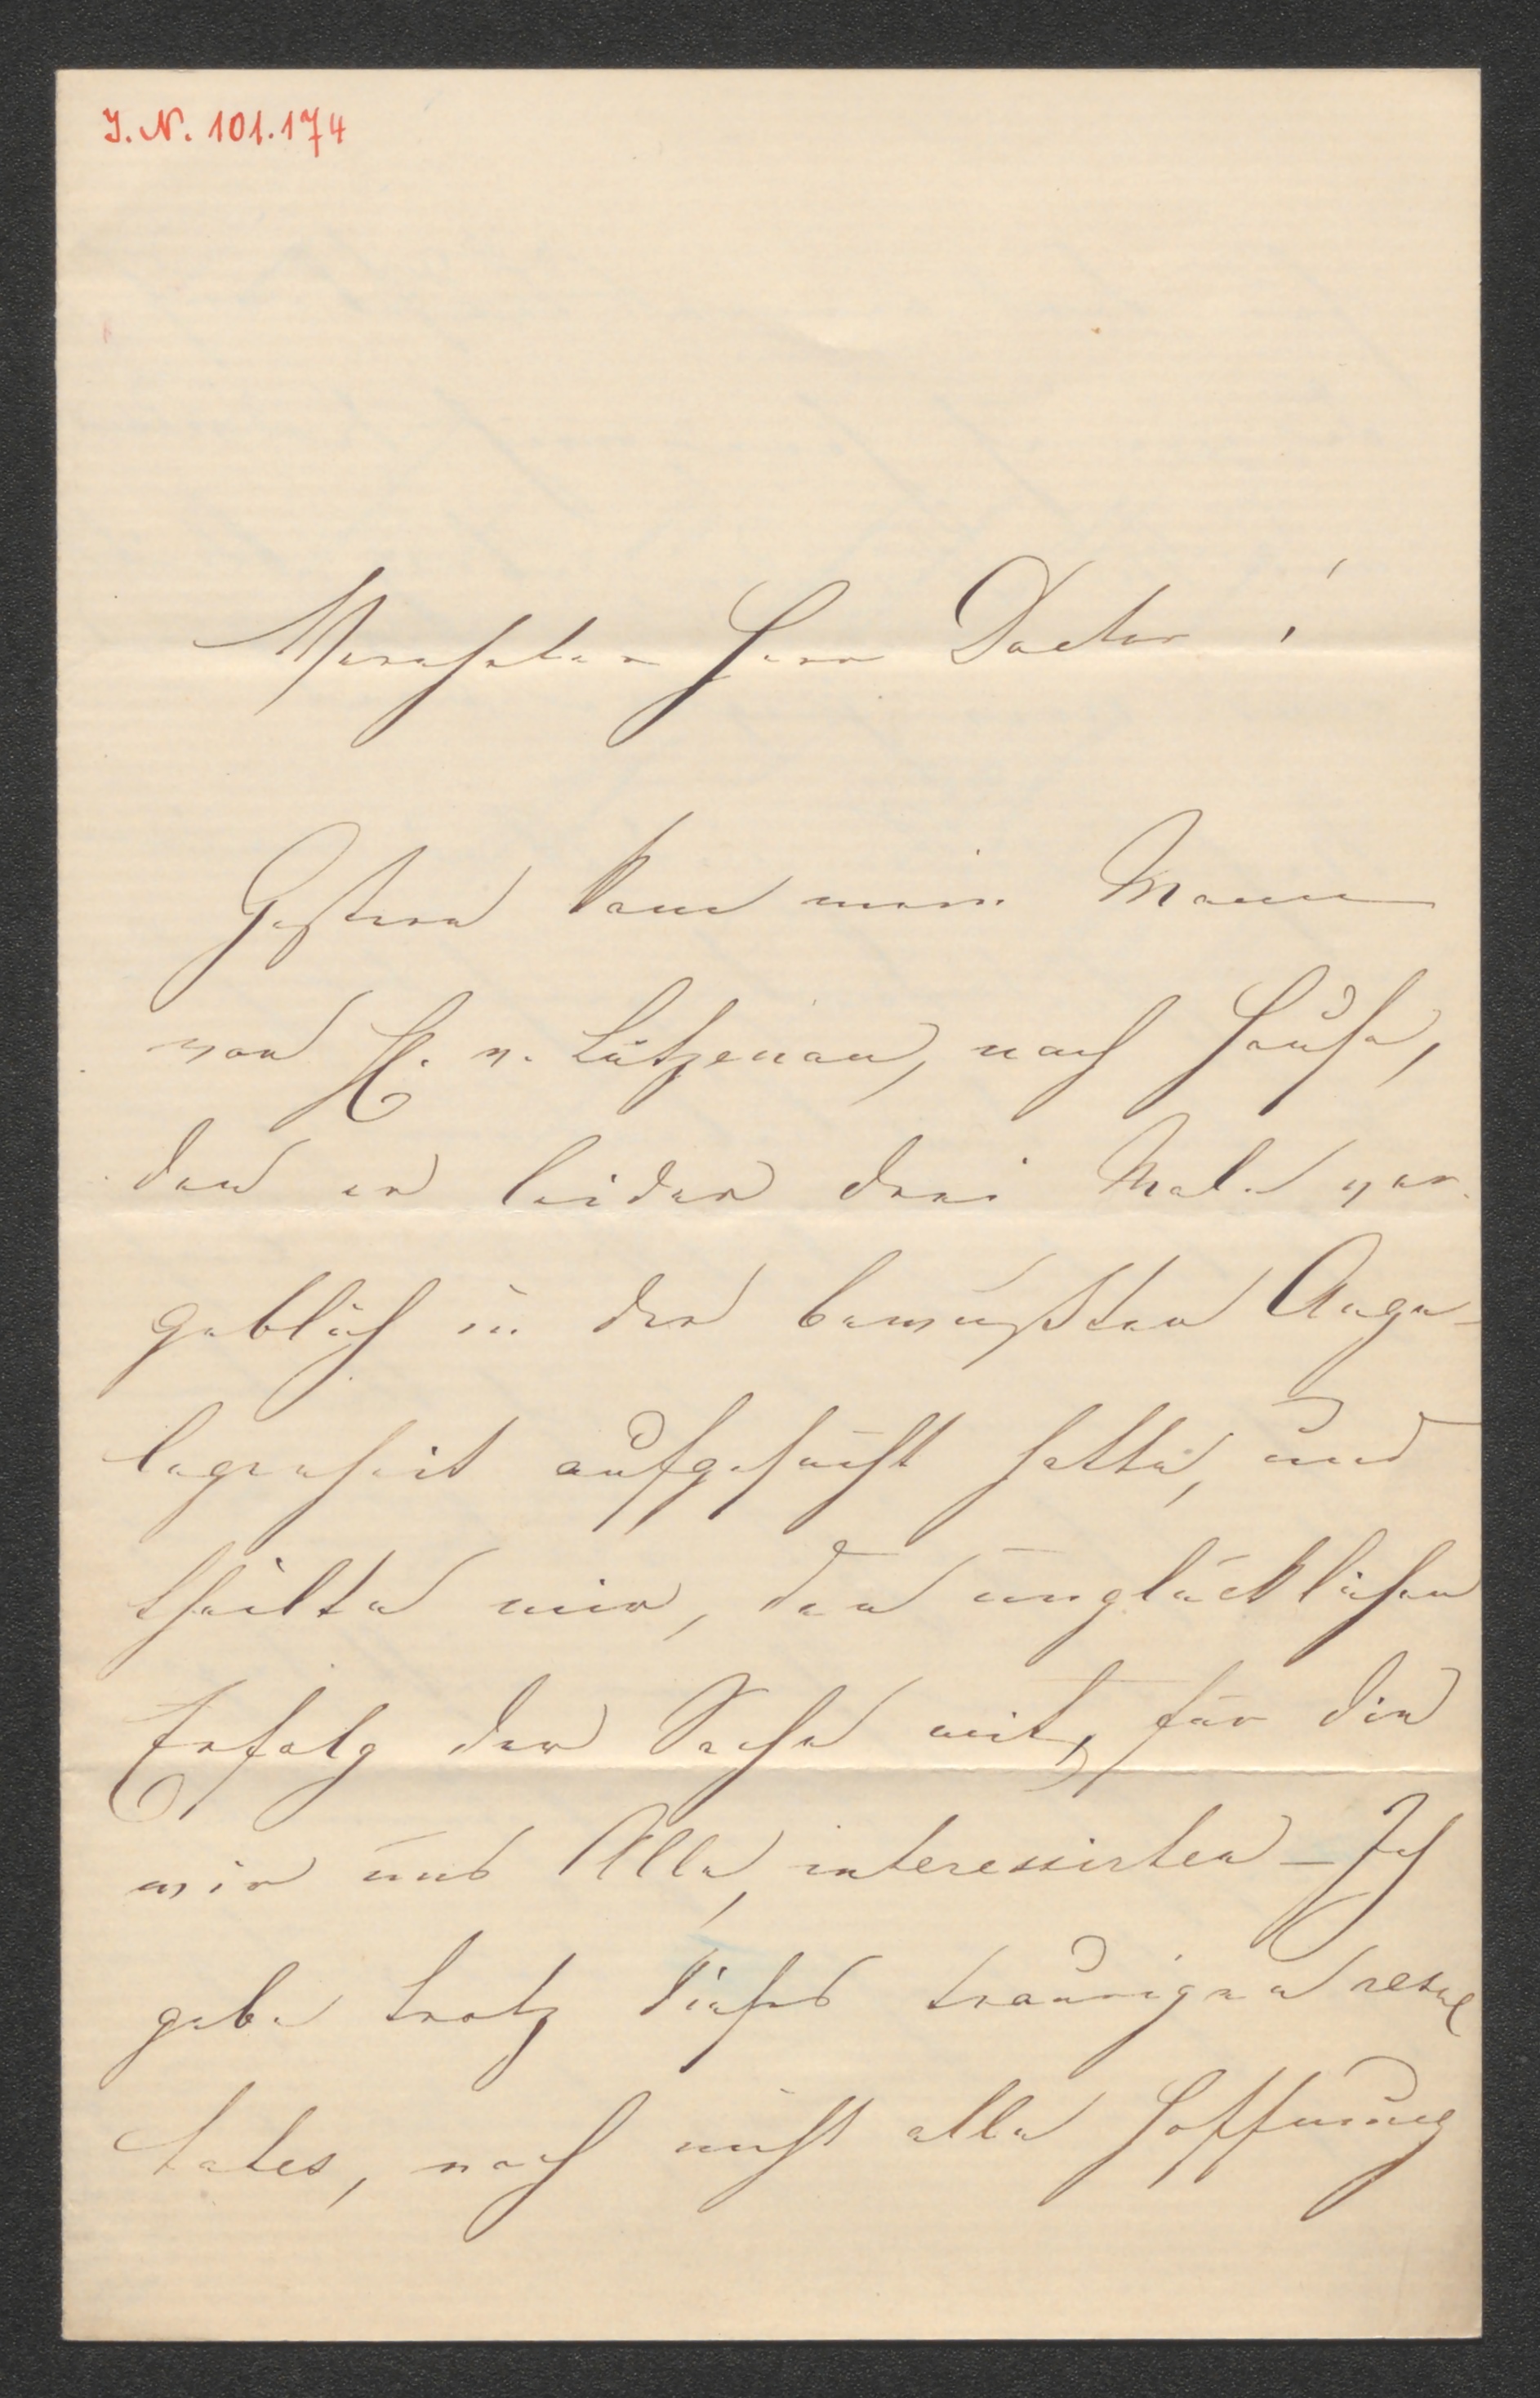 I. N. 101.174
Verehrter Herr Doctor!
Gestern kam mein Mann
von H. v. Lützenau, nach Hause,
den er leider drei Male ver-
geblich in der bewußten Ange-
legenheit aufgesucht hatte, und
theilte mir, den unglücklichen
Erfolg der Sache mit, für die
wir uns Alle, interessirten – Ich
gebe trotz dieses traurigen resul
tates, noch nicht alle Hoffnung